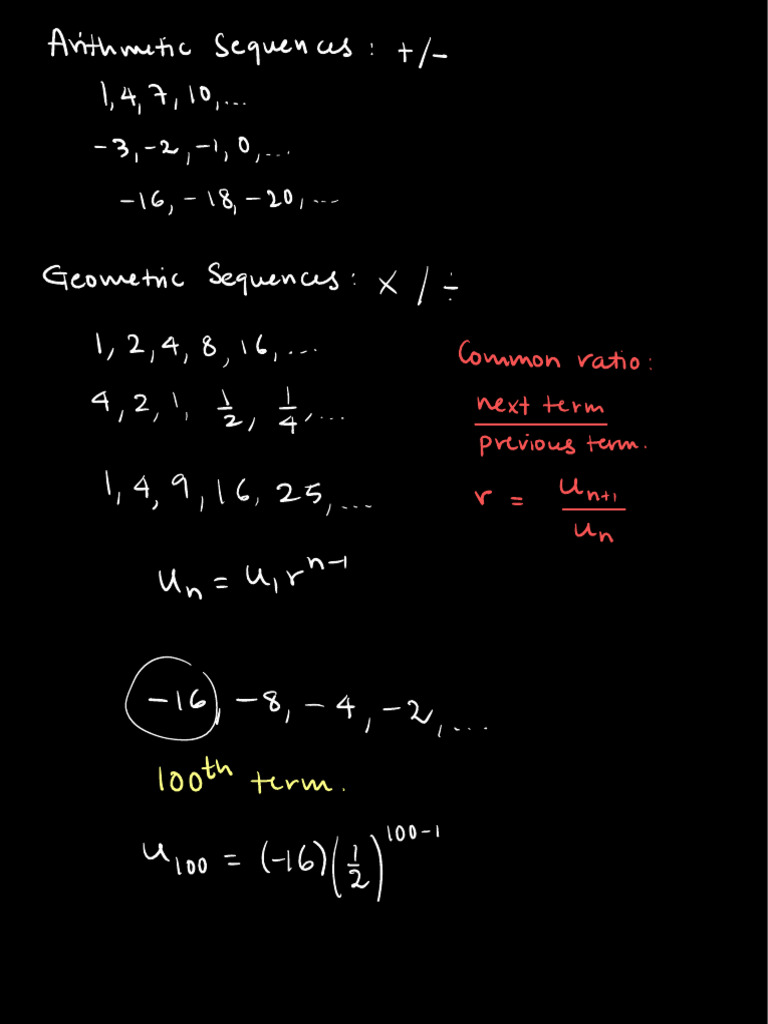 Arithmetic Sequences: +/-
1, 4, 7, 10, ...
-3, -2, -1, 0, ...
-16, -18, -20, ...
Geometric Sequences: × / ÷
1, 2, 4, 8, 16, ...
4, 2, 1, 1/2, 1/4, ...
1, 4, 9, 16, 25, ...
uₙ = u₁rⁿ⁻¹
Common ratio:
next term
previous term.
r = uₙ₊₁/uₙ
-16, -8, -4, -2, ...
100th term.
u₁₀₀ = (-16)(1/2)¹⁰⁰⁻¹